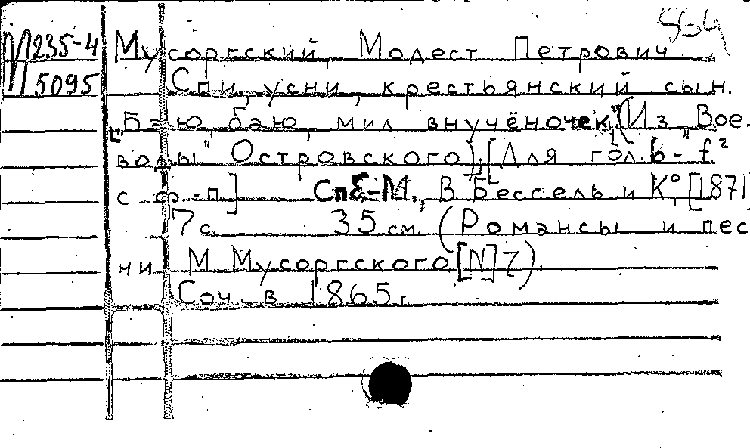 564
М235-4 Мусоргский, Модест Петрович
5095 Спи, усни, крестьянский сын.
"Баю, баю, мил внучёночек" (Из "Вое-
воды" Островского); [Для гол. b-f²
с ф.-п.] СПб-М., В. Бессель и К°, [1871]
7 с. 35 см. (Романсы и пес
ни М. Мусоргского [N] 7)
Соч. в 1865 г.